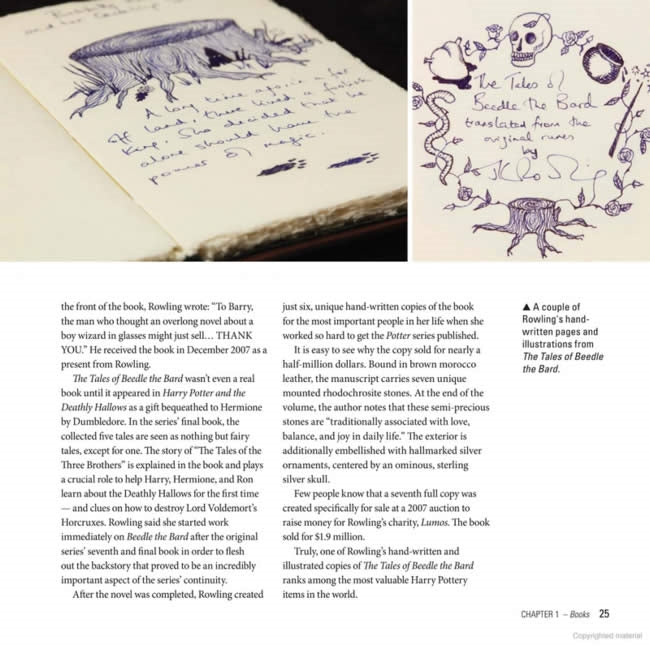 A long time ago, in a far
off land, there lived a foolish
King. who decided that he
alone should have the
power of magic.
The Tales of
Beedle the Bard
translated from the
original runes
by
the front of the book, Rowling wrote: “To Barry,
the man who thought an overlong novel about a
boy wizard in glasses might just sell… THANK
YOU.” He received the book in December 2007 as a
present from Rowling.
The Tales of Beedle the Bard wasn’t even a real
book until it appeared in Harry Potter and the
Deathly Hallows as a gift bequeathed to Hermione
by Dumbledore. In the series’ final book, the
collected five tales are seen as nothing but fairy
tales, except for one. The story of “The Tales of the
Three Brothers” is explained in the book and plays
a crucial role to help Harry, Hermione, and Ron
learn about the Deathly Hallows for the first time
— and clues on how to destroy Lord Voldemort’s
Horcruxes. Rowling said she started work
immediately on Beedle the Bard after the original
series’ seventh and final book in order to flesh
out the backstory that proved to be an incredibly
important aspect of the series’ continuity.
After the novel was completed, Rowling created
just six, unique hand-written copies of the book
for the most important people in her life when she
worked so hard to get the Potter series published.
It is easy to see why the copy sold for nearly a
half-million dollars. Bound in brown morocco
leather, the manuscript carries seven unique
mounted rhodochrosite stones. At the end of the
volume, the author notes that these semi-precious
stones are “traditionally associated with love,
balance, and joy in daily life.” The exterior is
additionally embellished with hallmarked silver
ornaments, centered by an ominous, sterling
silver skull.
Few people know that a seventh full copy was
created specifically for sale at a 2007 auction to
raise money for Rowling’s charity, Lumos. The book
sold for $1.9 million.
Truly, one of Rowling’s hand-written and
illustrated copies of The Tales of Beedle the Bard
ranks among the most valuable Harry Pottery
items in the world.
▲ A couple of
Rowling’s hand-
written pages and
illustrations from
The Tales of Beedle
the Bard.
CHAPTER 1 – Books 25
Copyrighted material